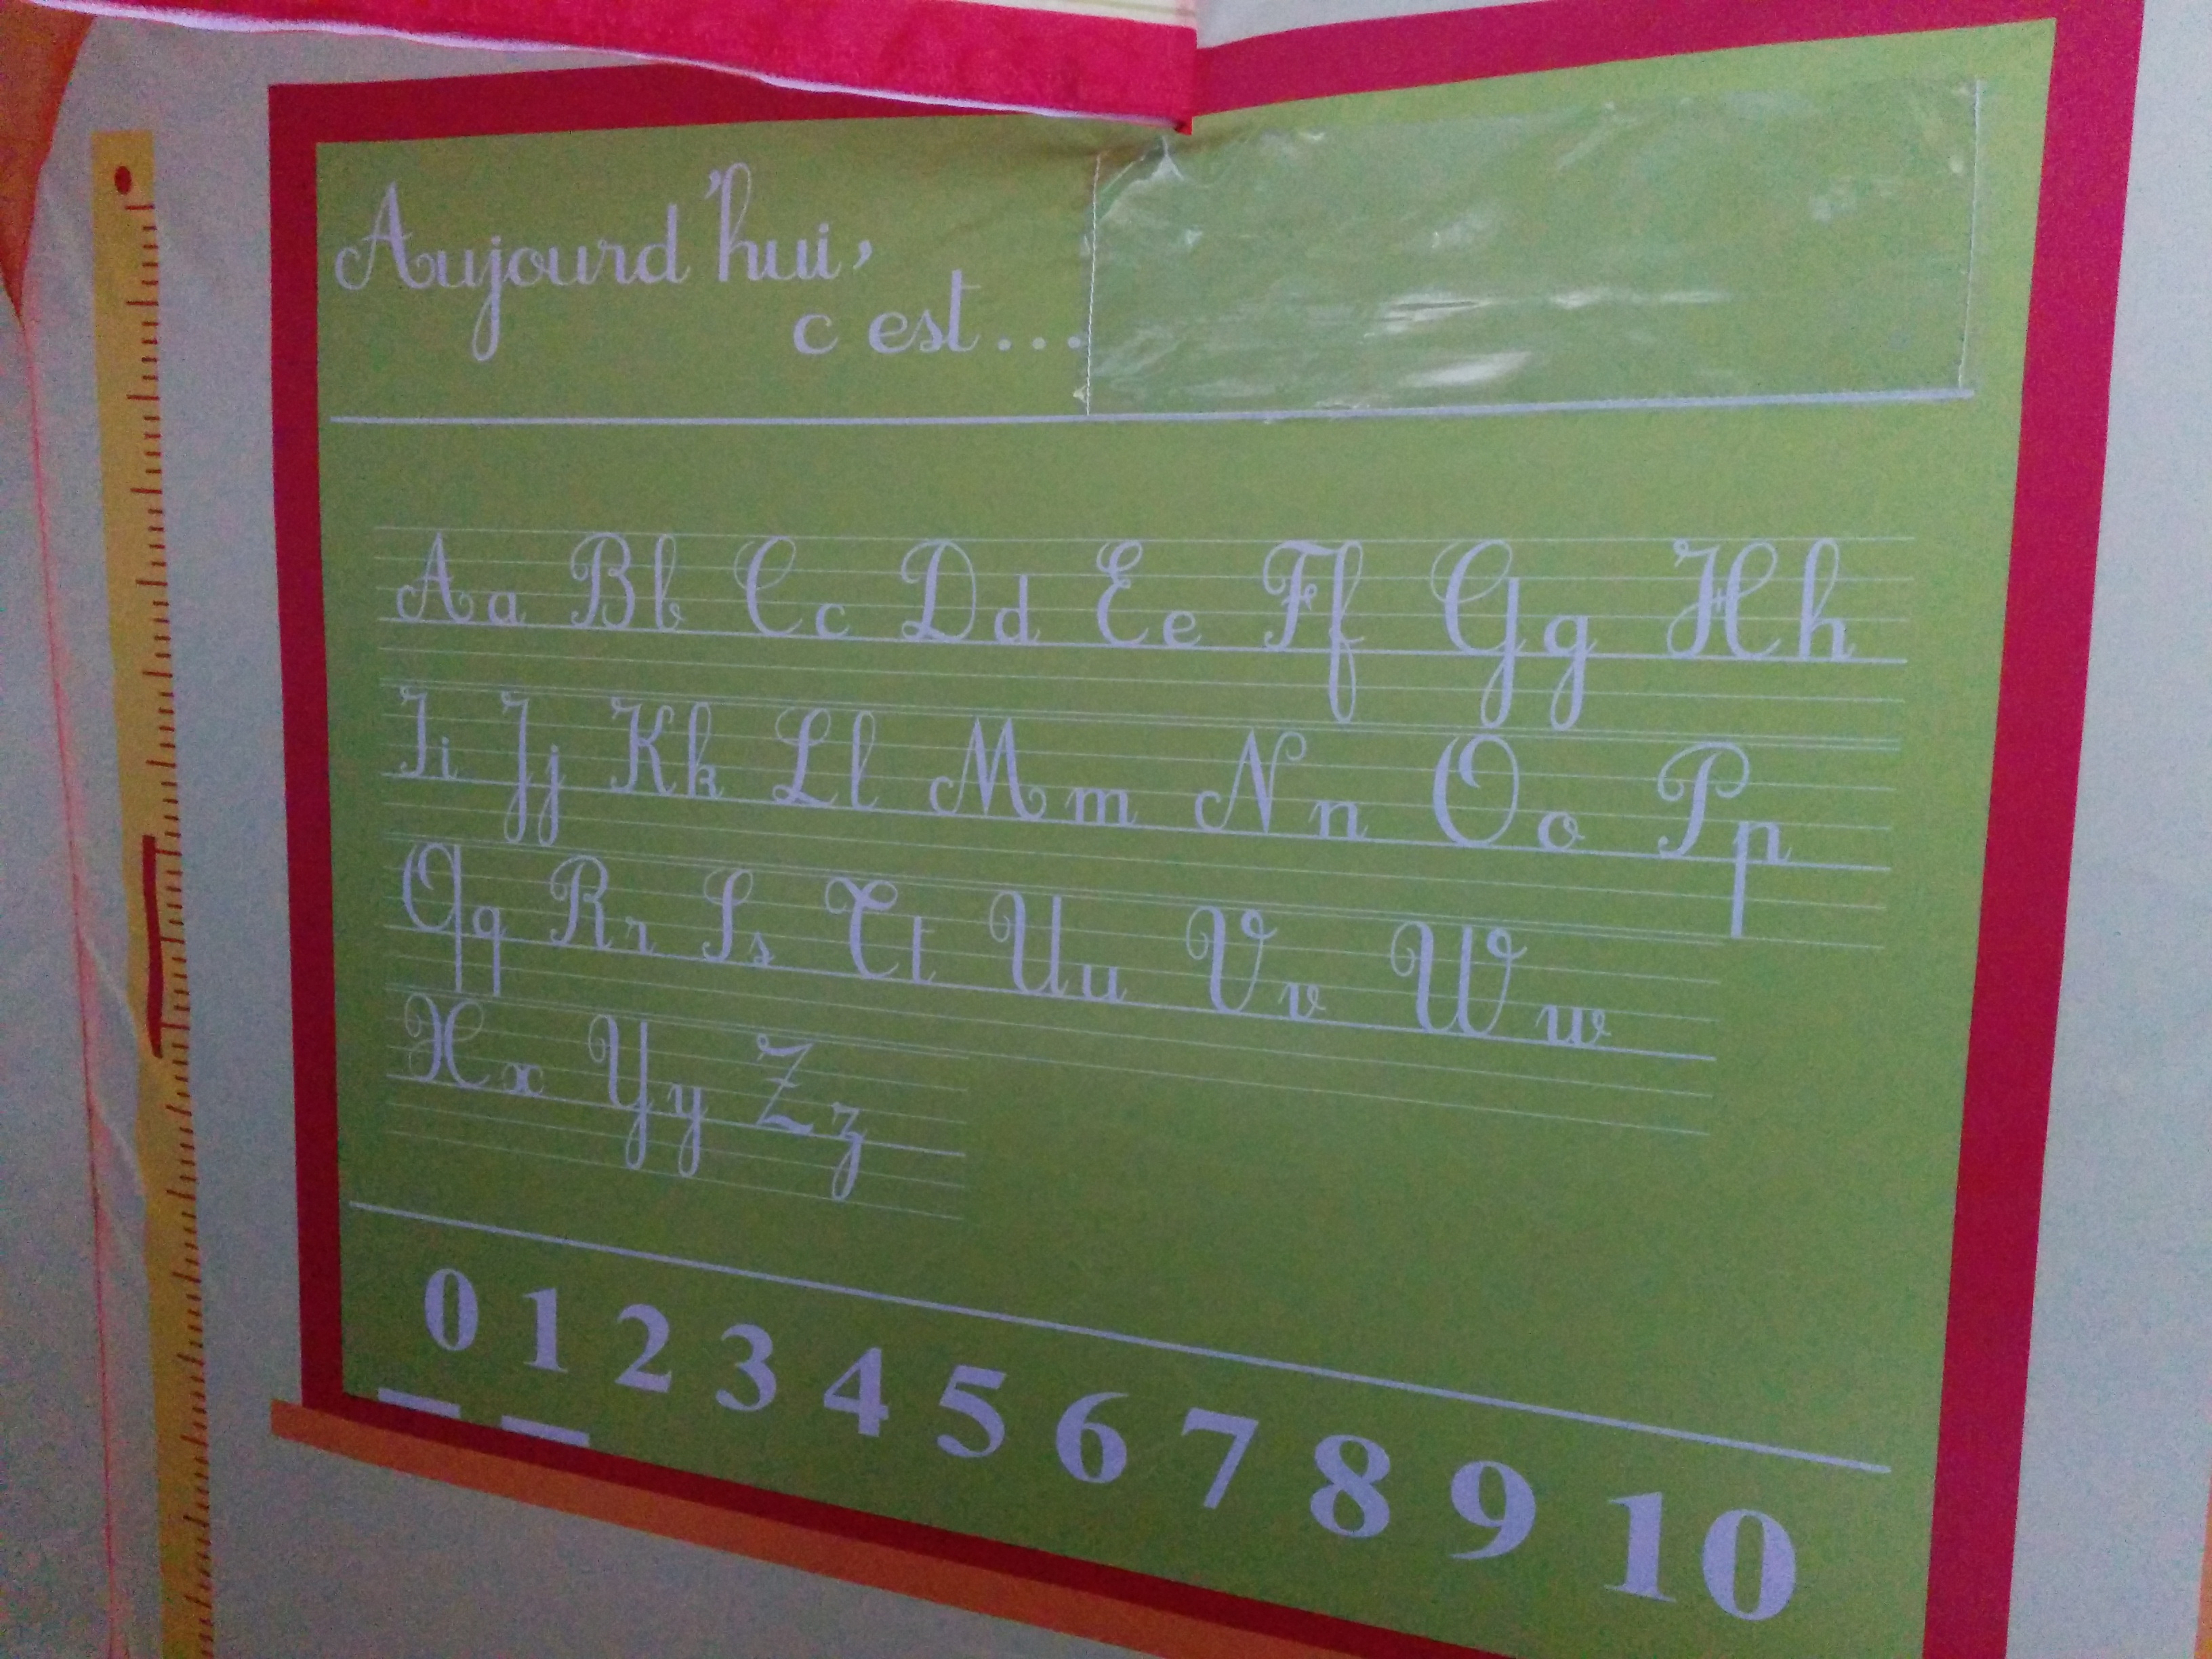 Aujourd'hui,
c est...
Aa Bb Cc Dd Ee Ff Gg Hh
Ii Jj Kk Ll Mm Nn Oo Pp
Qq Rr Ss Tt Uu Vv Ww
Xx Yy Zz
0 1 2 3 4 5 6 7 8 9 10